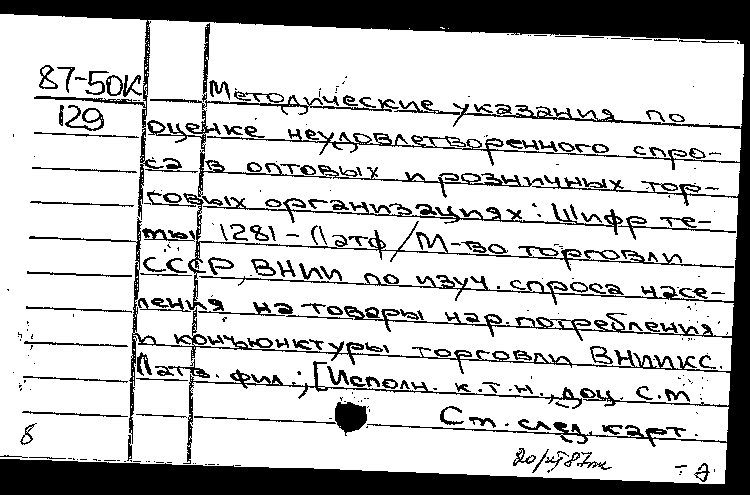 87-50К
129
Методические указания по
оценке неудовлетворенного спро-
са в оптовых и розничных тор-
говых организациях: Шифр те-
мы 1281-Латф/М-во торговли
СССР, ВНИИ по изуч. спроса насе-
ления на товары нар. потребления
и конъюнктуры торговли ВНИИКС.
Латв. фил.; [Исполн. к.т.н., доц. С.М.
См. след. карт.
8